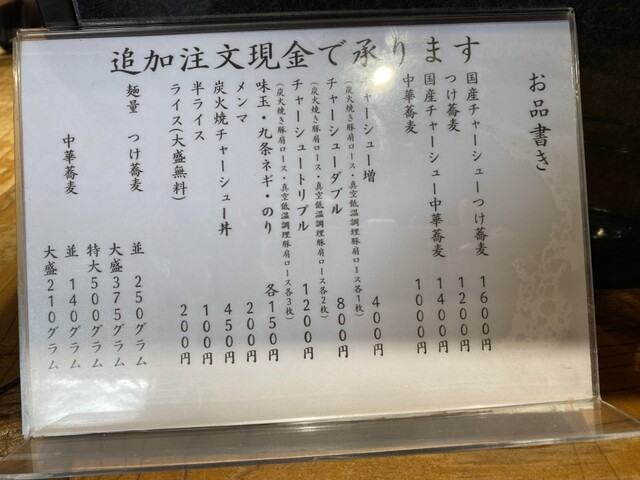 追加注文現金で承ります
お品書き
国産チャーシューつけ蕎麦 1600円
つけ蕎麦 1200円
国産チャーシュー中華蕎麦 1400円
中華蕎麦 1000円
チャーシュー増 400円
(炭火焼き豚肩ロース・真空低温調理豚肩ロース各1枚)
チャーシューダブル 800円
(炭火焼き豚肩ロース・真空低温調理豚肩ロース各2枚)
チャーシュートリプル 1200円
(炭火焼き豚肩ロース・真空低温調理豚肩ロース各3枚)
味玉・九条ネギ・のり 各150円
メンマ 200円
炭火焼チャーシュー丼 450円
半ライス 100円
ライス(大盛無料) 200円
麺量 つけ蕎麦 並 250グラム
大盛375グラム
特大500グラム
中華蕎麦 並 140グラム
大盛210グラム